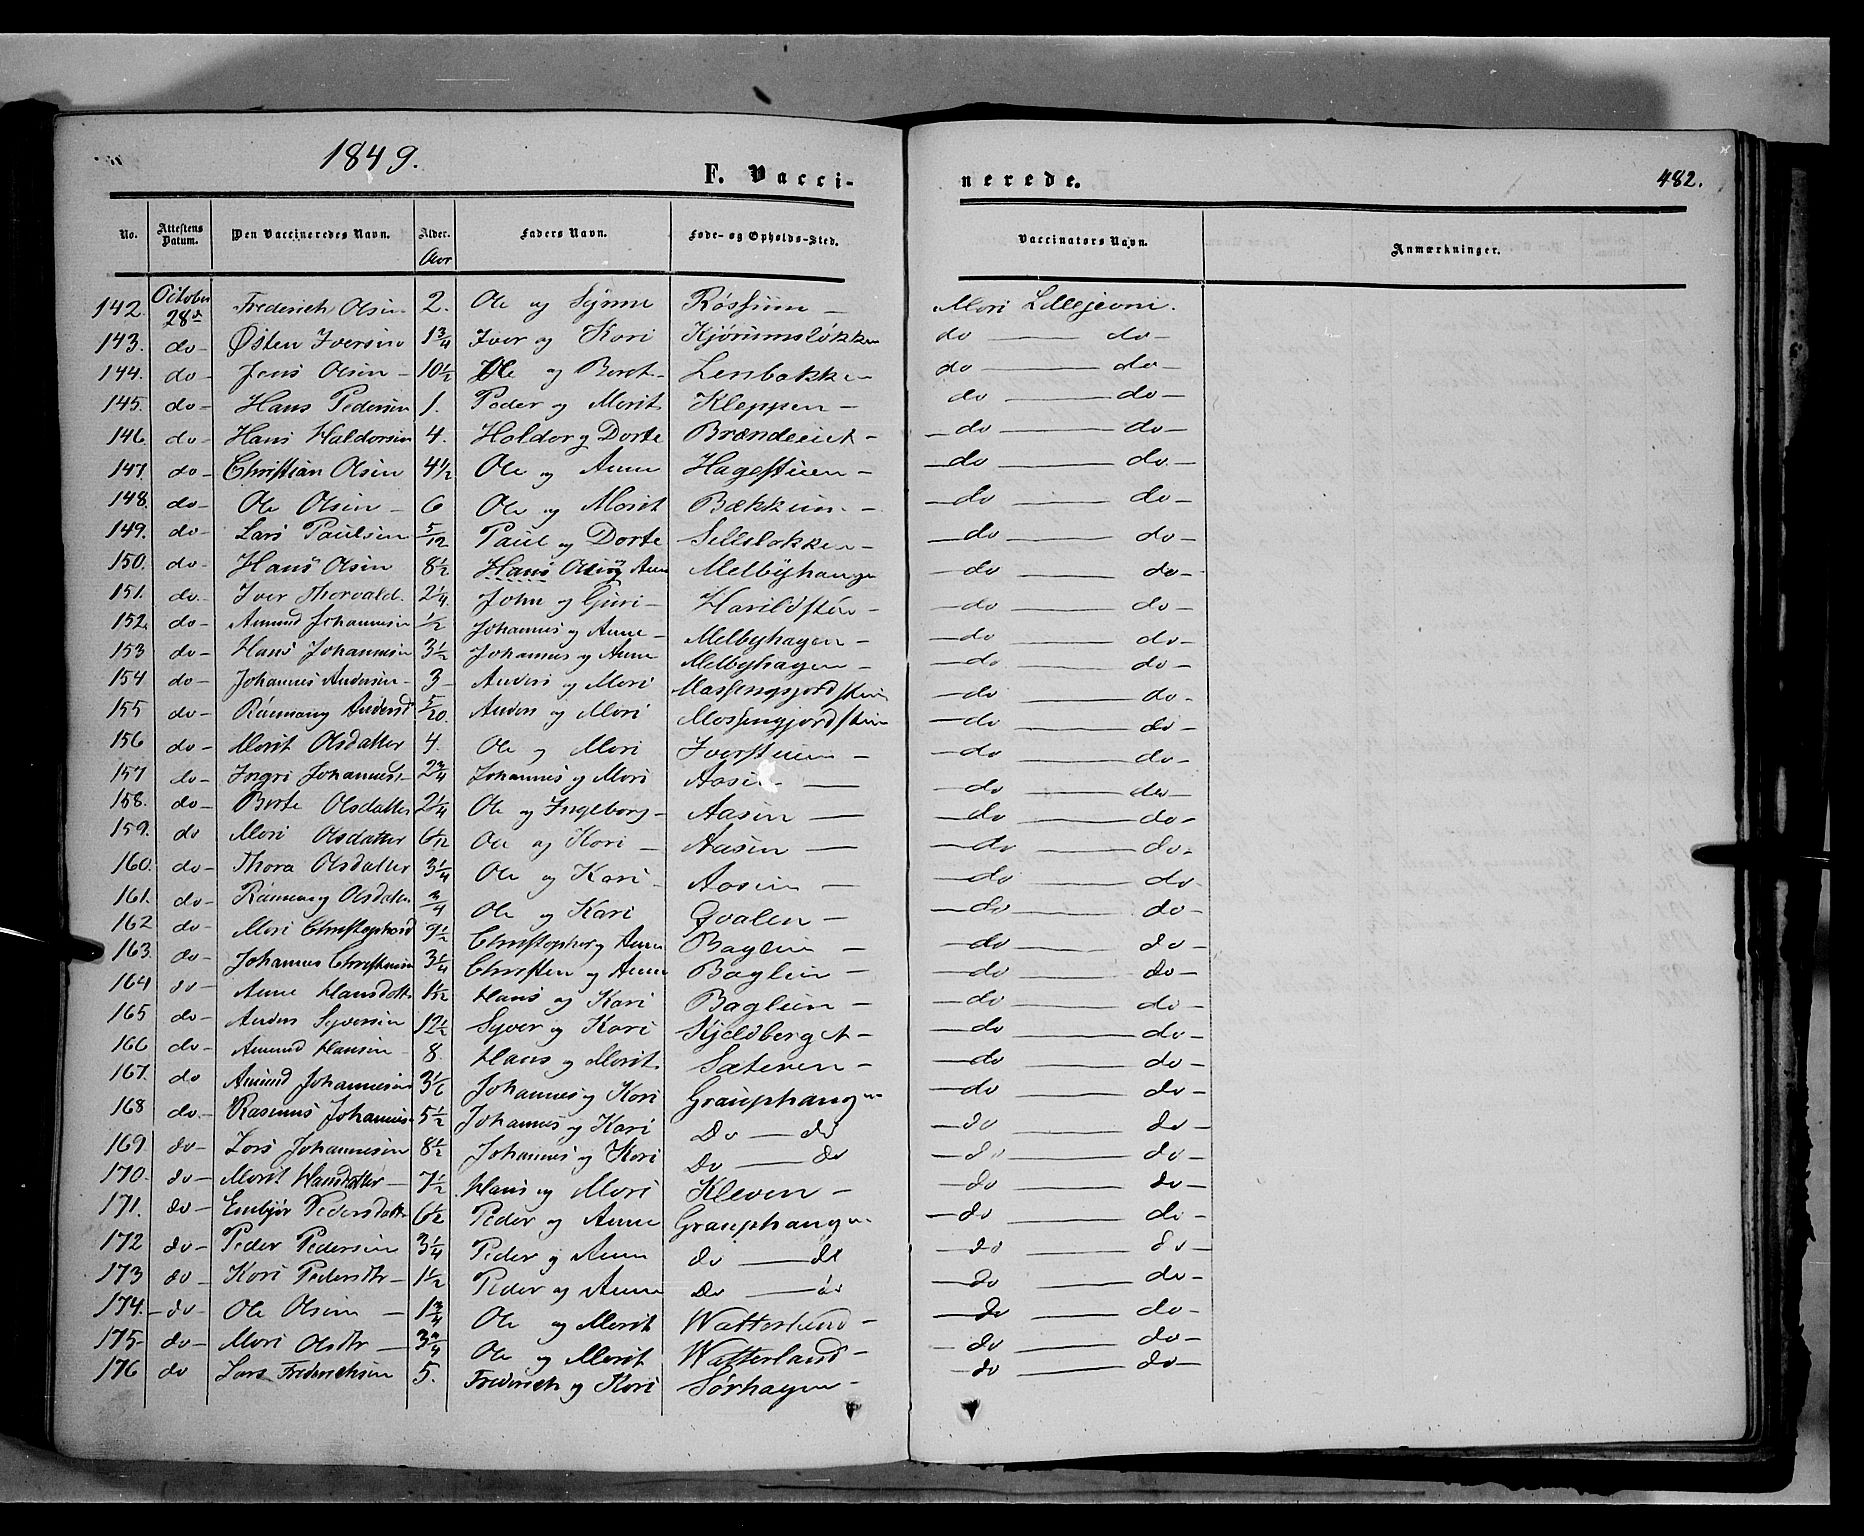 1849.
F. Vacci-
nerede.
482.
No. Attestens Datum. Den Vaccineredes Navn. Alder. Aar Faders Navn. Føde- og Opholds-Sted. Vaccinators Navn. Anmærkninger.
142. October 28d Frederich Olsen 2. Ole og Synne Røssum — Mari
143. do- Østen Iversen 1 3/4 Iver og Kari Kjørumsløkken do — do-
144. do- Jens Olsen - 10 1/2 Ole og Beret- Lenbakken do — do-
145. do- Hans Pedersen 1. Peder og Marit Kleppen- do — do-
146. do- Hans Haldorsen 4. Haldor og Dorte do — do-
147. do- Christian Olsen 4 1/2 Ole og Anne Hagestuen- do — do-
148. do- Ole Olsen - 6 Ole og Marit Bækkum- do — do-
149. do- Lars Paulsen 5/12 Paul og Dorte Sellsløkken- do — do-
150. do- Hans Olsen 8 1/2 Hans Olsen og Anne Melbyhagen do — do-
151. do- Iver Thorvald. 2 1/4 John og Guri- Harildstuen- do — do-
152. do- Amund Johannesen 1/2 Johannes og Anne- Melbyhagen- do — do-
153 do- Hans Johannesen 3 1/2 Johannes og Anne Melbyhagen- do — do-
154 do- Johannes Andersen- 3- Anders og Mari do — do-
155 do- Rønnaug Andersd 5/20. Anders og Mari do — do-
156 do- Marit Olsdatter 4. Ole og Mari Iverstuen- do — do-
157 do- Ingri Johannesd. 2 3/4 Johannes og Mari Aasen — do — do-
158. do- Berte Olsdatter 2 1/4 Ole og Ingeborg- Aasen — do — do-
159. do Mari Olsdatter 6 1/2 Ole og Kari — Aasen — do — do-
160. do- Thora Olsdatter 3 1/4 Ole og Kari- Aasen — do — do-
161. do- Rønnaug Olsdatter 3/4 Ole og Kari Qvalen- do — do-
162 do- Mari Christophersd 9 1/2 Christopher og Anne Baglien- do — do-
163. do- Johannes Christensen 3 1/4 Christen og Anne Baglien- do — do-
164 do- Anne Hansdatt. 1 1/2 Hans og Kari Baglien- do — do-
165 do- Anders Syversen 12 1/2 Syver og Kari Kjeldberget- do — do-
166 do- Amund Hansen- 8. Hans og Marit Sæteren- do — do-
167. do Amund Johannesen 3 1/2 Johannes og Kari Grauphaugen do — do-
168 do- Rasmus Johannes- 5 1/2 Johannes og Kari Do — do do — do-
169. do- Lars Johannesen 8 1/2 Johannes og Kari Do — do do — do-
170. do- Marit Hansdatter- 7 1/2 Hans og Mari Kleven- do — do-
171. do- Embjør Pedersdatt. 6 1/2 Peder og Anne Grauphaugen do — do-
172 do- Peder Pedersen 3 1/4 Peder og Anne do — do do — do-
173 do- Kari Pedersdtr- 1 1/2 Peder og Anne Do — do do — do-
174.- do- Ole Olsen — 1 3/4 Ole og Marit Watterland- do — do-
175- do- Mari Olsdtr — 3 3/4 Ole og Marit Watterland- do — do-
176 do Lars Frederichsen 5. Frederich og Kari Sørhagen- do — do-